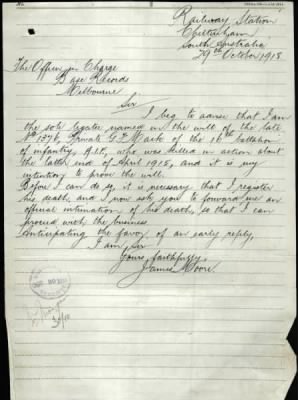 Railway Station
Cheltenham
South Australia
29th October, 1915
The Officer in Charge
Base Records
Melbourne
Sir
I beg to advise that I am
the sole legatee named in the will of the late
Private of the 16th Battalion
of infantry, A.I.F., who was killed in action about
the latter end of April 1915, and it is my
intention to prove the will.
Before I can do so, it is necessary that I register
his death, and I now ask you to forward me an
official intimation of his death, so that I can
proceed with the business.
Anticipating the favor of an early reply,
I am Sir
Yours faithfully,
James Moore.